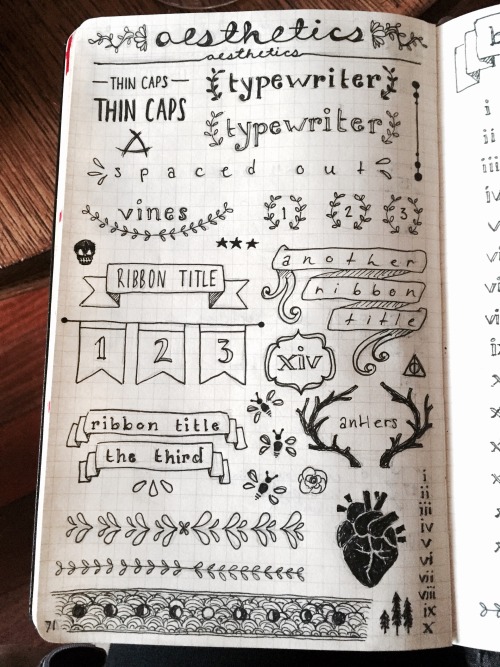 aesthetics
aesthetics
THIN CAPS
THIN CAPS
typewriter
typewriter
spaced out
vines
1 2 3
RIBBON TITLE
another
ribbon
title
1 2 3
xiv
ribbon title
the third
antlers
i
ii
iii
iv
v
vi
vii
viii
ix
x
71
b
i
ii
iii
iv
v
vi
vi